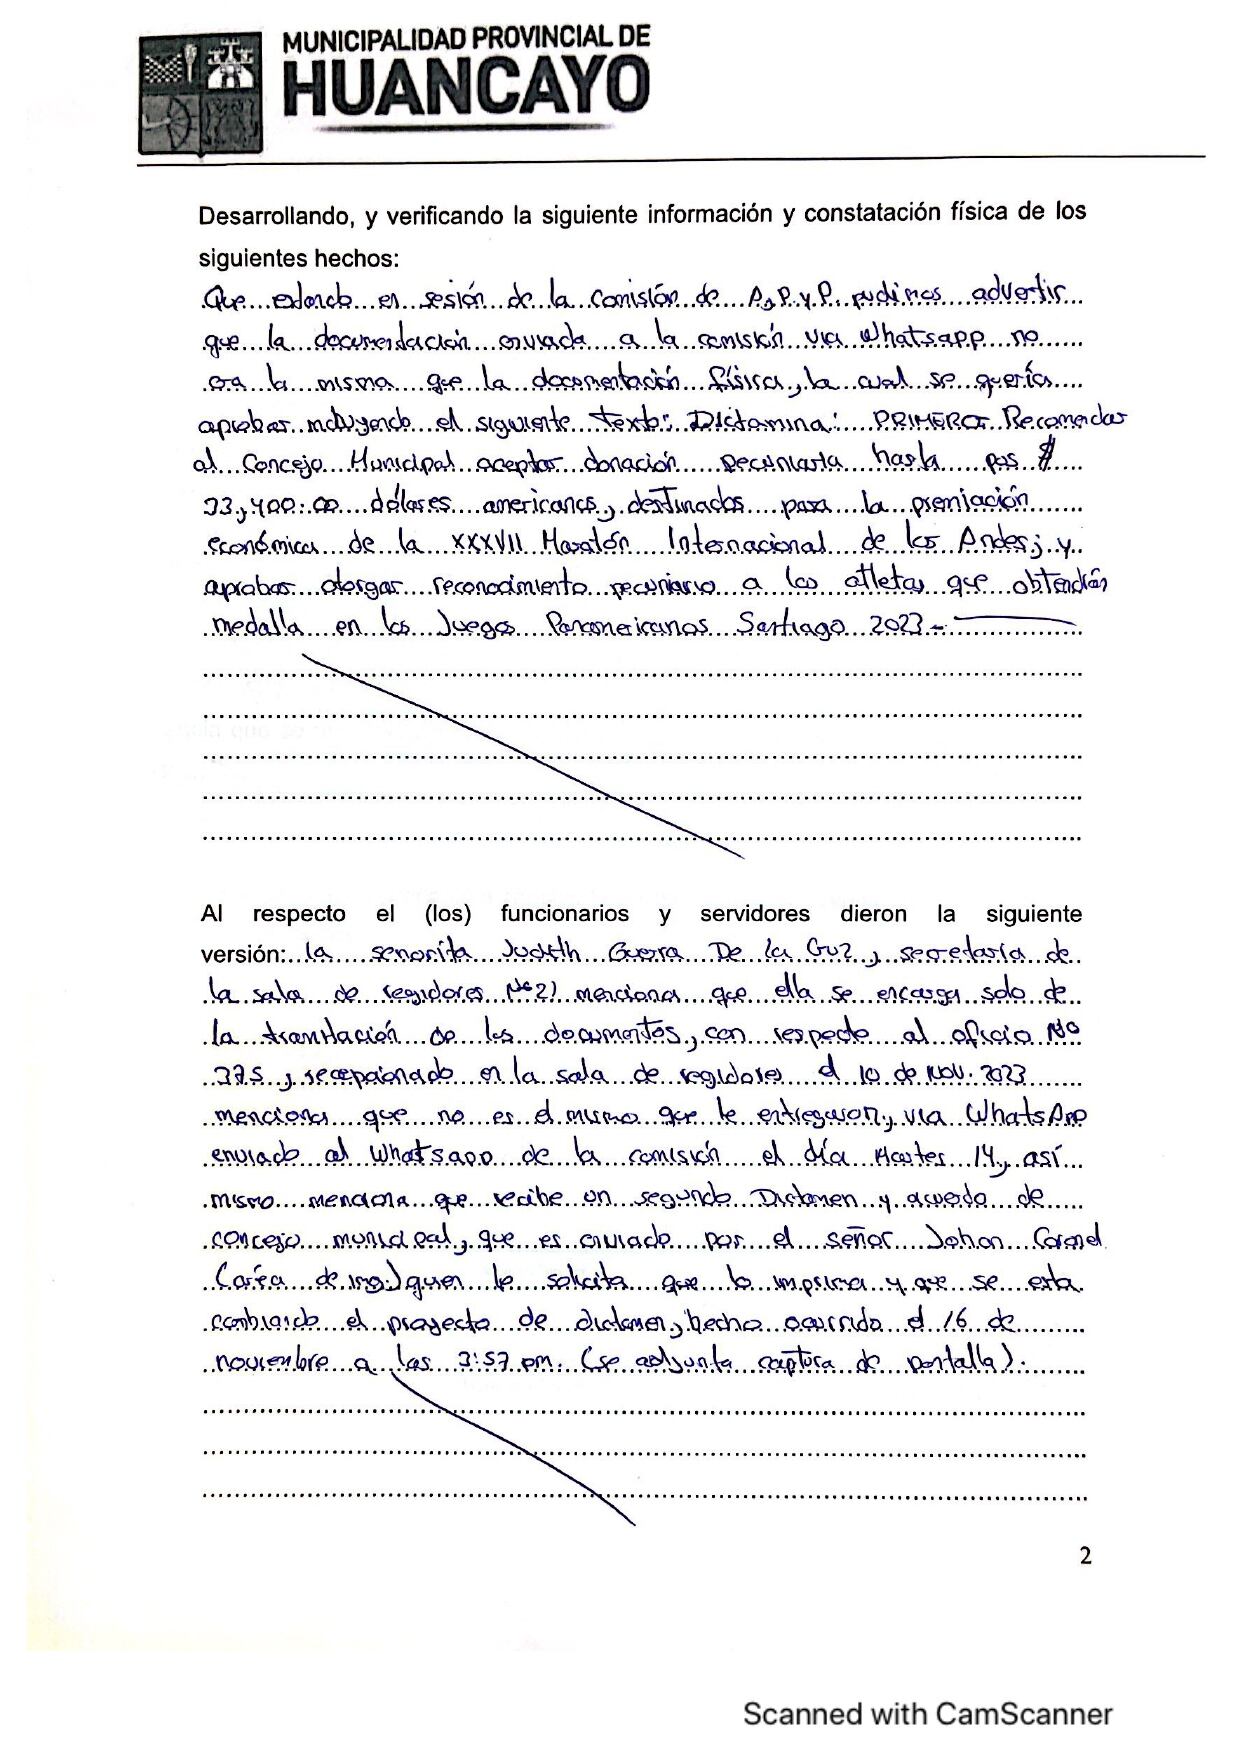 MUNICIPALIDAD PROVINCIAL DE
HUANCAYO
Desarrollando, y verificando la siguiente información y constatación física de los
siguientes hechos:
Que estando en sesión de la comisión de A,P y P. pudimos advertir
que la documentación enviada a la comisión via Whatsapp no
era la misma que la documentación física, la cual se quería
aprobar incluyendo el siguiente texto: Dictamina: PRIMERO: Recomendar
al Concejo Municipal aceptar donación pecuniaria hasta por $
33,400.00 dólares americanos, destinados para la premiación
económica de la XXXVII Maratón Internacional de los Andes; y
aprobar otorgar reconocimiento pecuniario a los atletas que obtendrán
medalla en los Juegos Panamericanos Santiago 2023.-
Al respecto el (los) funcionarios y servidores dieron la siguiente
versión: la señorita Judith Guerra De la Cruz, secretaria de
la sala de regidores N° 2) menciona que ella se encarga solo de
la tramitación de los documentos, con respecto al oficio N°
375, recepcionado en la sala de regidores el 10 de Nov. 2023
menciona que no es el mismo que le entregaron, via WhatsApp
enviado al Whatsapp de la comisión el día Martes 14, así
mismo menciona que recibe un segundo Dictamen y acuerdo de
concejo municipal, que es enviado por el señor Johan Coronel
de ing.) quien le solicita que lo imprima y que se esta
cambiando el proyecto de dictamen, hecho ocurrido el 16 de
noviembre a las 3:57 pm. (se adjunta captura de pantalla).
2
Scanned with CamScanner